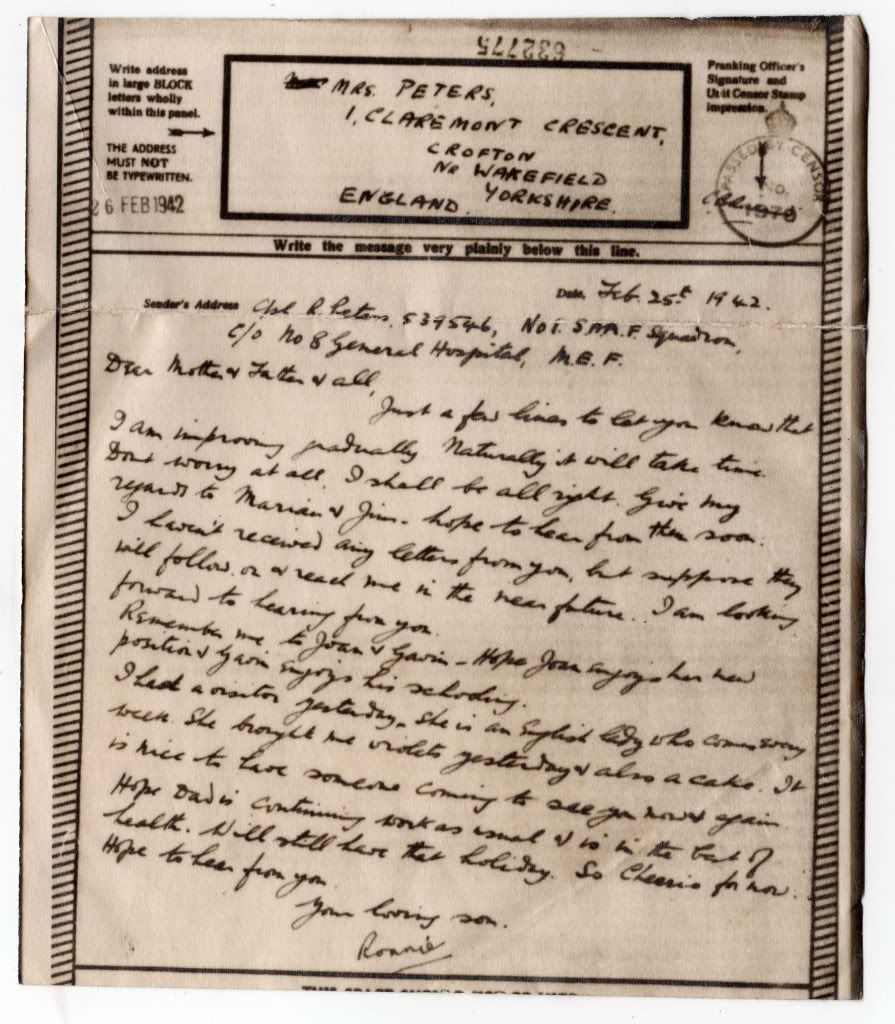 632775
Write address
in large BLOCK
letters wholly
within this panel.
THE ADDRESS
MUST NOT
BE TYPEWRITTEN.
26 FEB 1942
MRS. PETERS,
1, CLAREMONT CRESCENT,
CROFTON
Nr WAKEFIELD
YORKSHIRE.
ENGLAND.
Franking Officer's
Signature and
Unit Censor Stamp
impression.
PASSED BY CENSOR
NO.
Write the message very plainly below this line.
Date. Feb. 25th 1942.
Sender's Address Cpl R. Peters, 539546, No 1. S.A.A.F. Squadron,
C/o No 8 General Hospital, M.E.F.
Dear Mother & Father & all,
Just a few lines to let you know that
I am improving gradually. Naturally it will take time.
Dont worry at all. I shall be all right. Give my
regards to Marian & Jim - hope to hear from them soon.
I haven't received any letters from you, but suppose they
will follow on & reach me in the near future. I am looking
forward to hearing from you.
Remember me to Joan & Gavin - Hope Joan enjoys her new
position & Gavin enjoys his schooling.
I had a visitor yesterday. She is an English lady who comes every
week. She brought me violets yesterday & also a cake. It
is nice to have someone coming to see you now & again.
Hope Dad is continuing work as usual & is in the best of
health. Will still have that holiday. So Cheerio for now.
Hope to hear from you.
Your loving son.
Ronnie